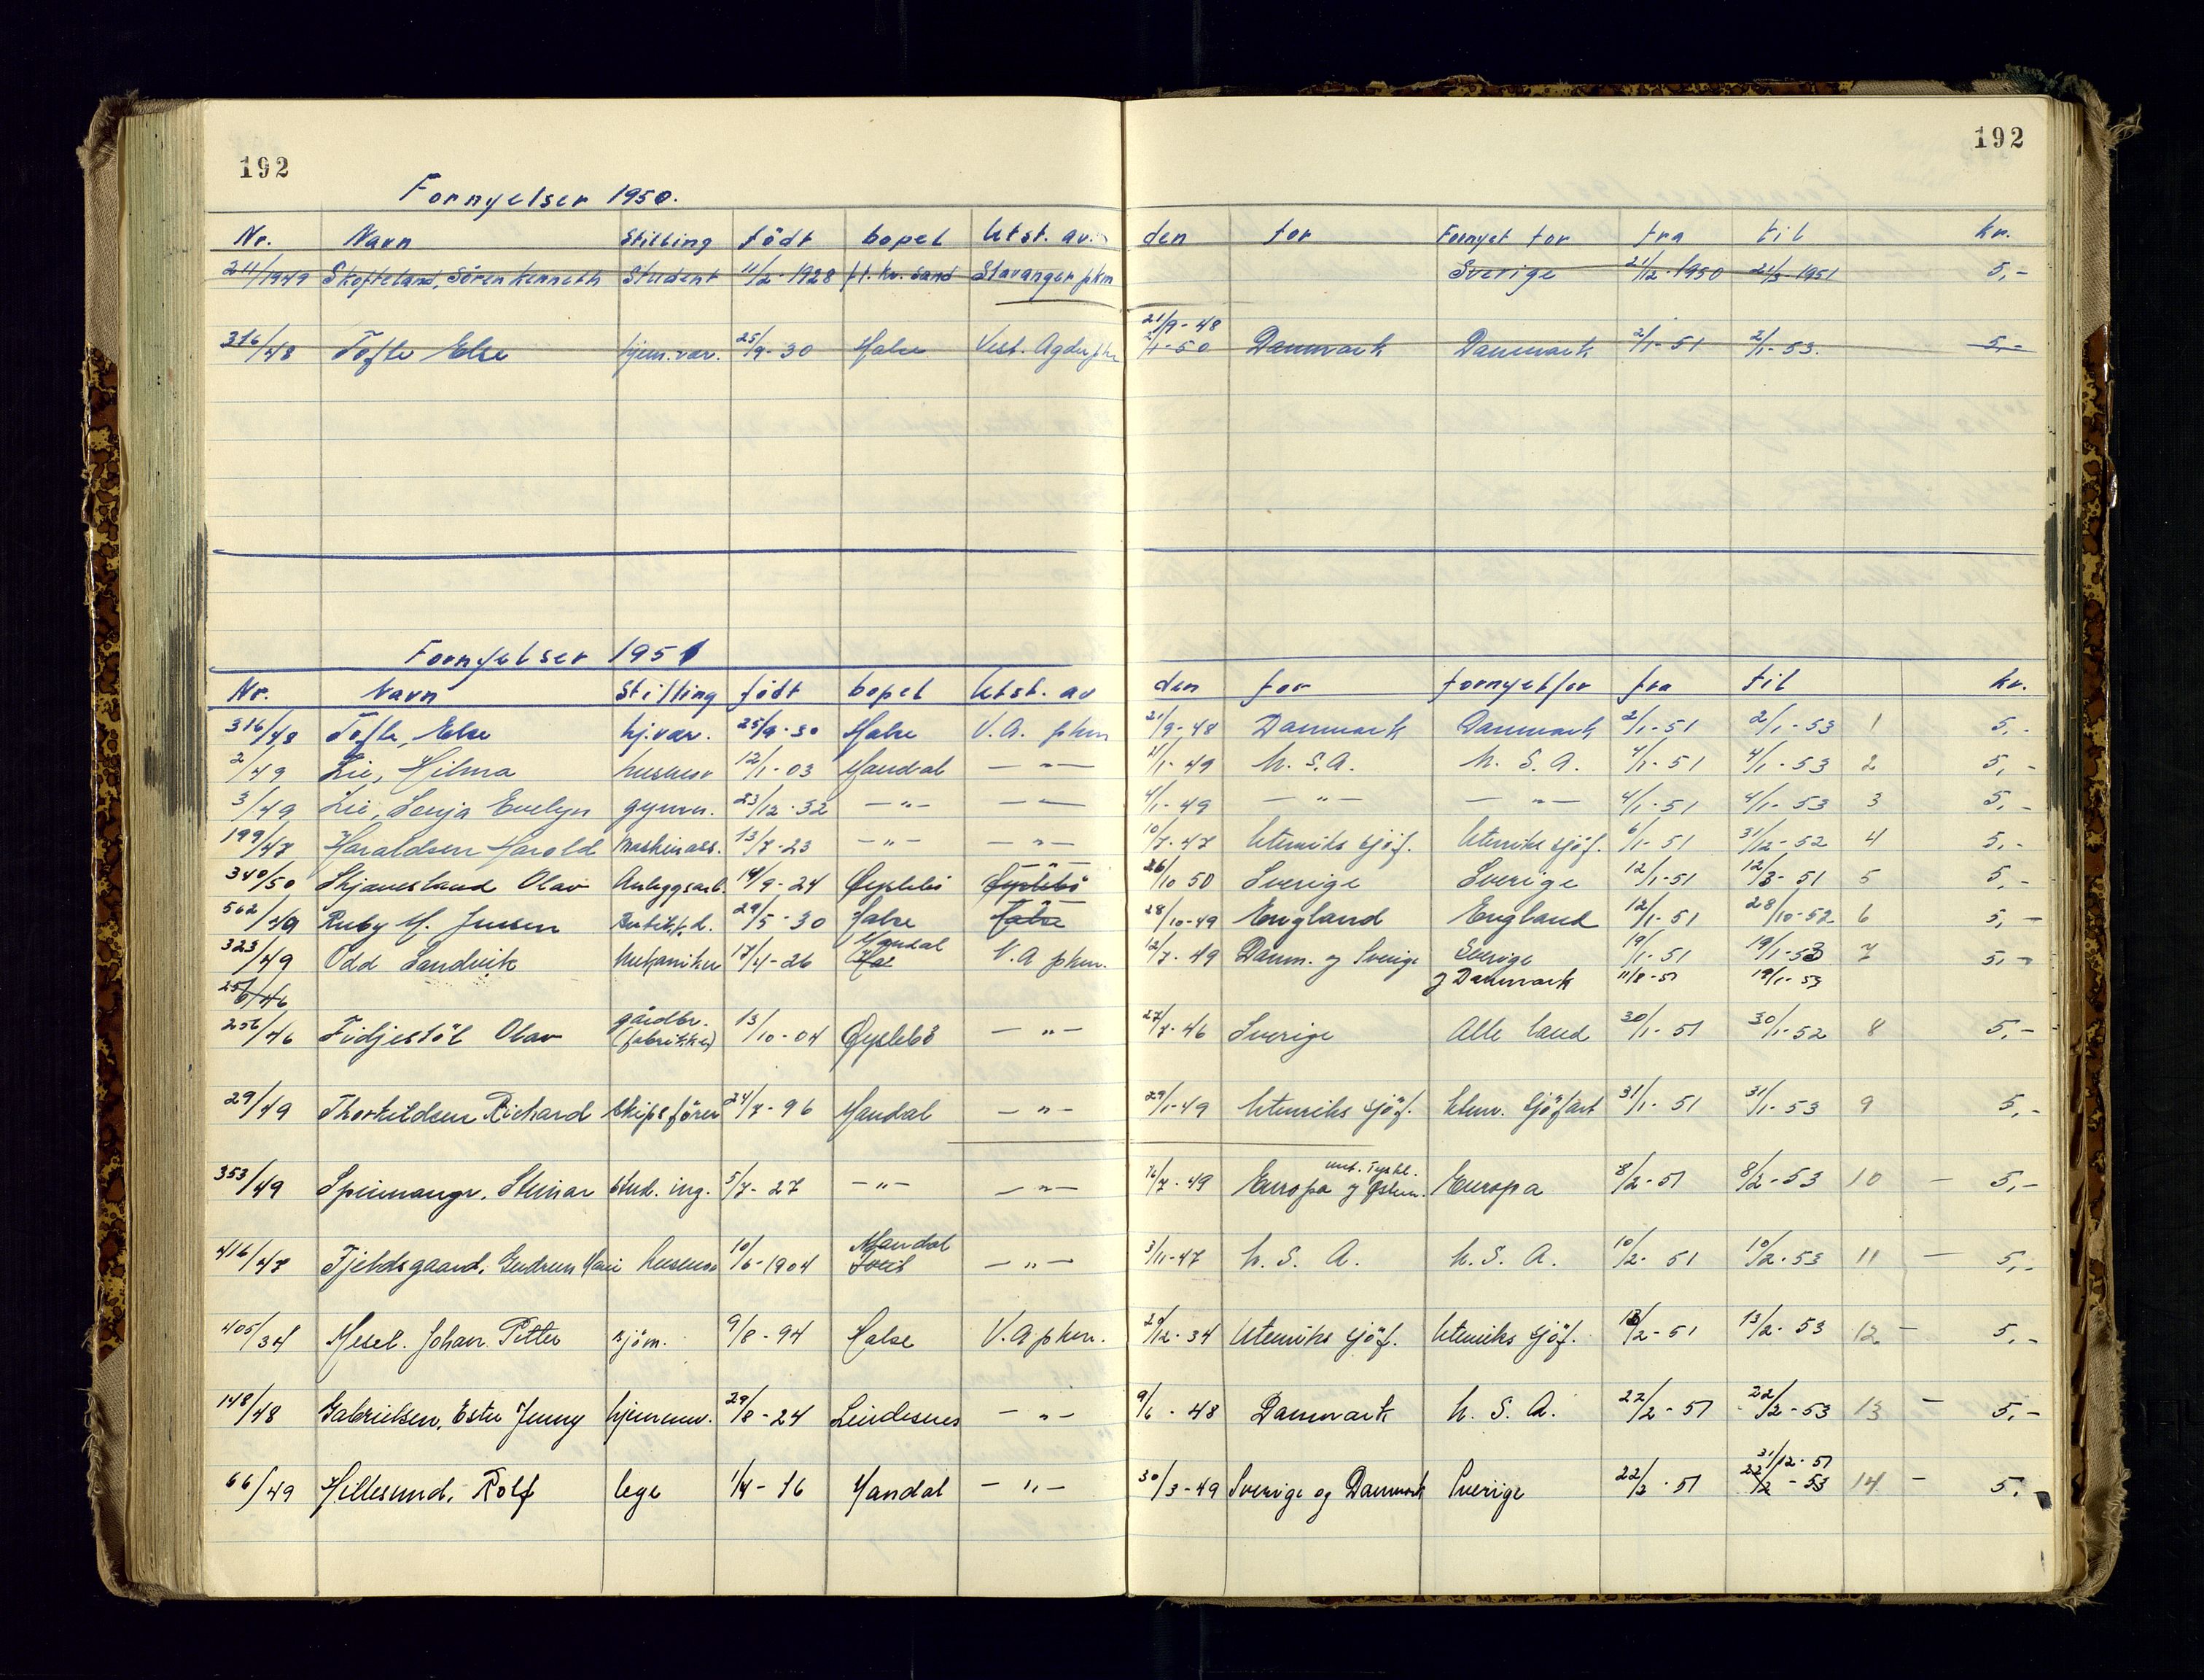 192
192
Fornyelser 1950.
Nr. Navn Stilling födt bopel Utst. av. den for Fornyet for fra til kr.
211/1949 Skofteland, Sören Kenneth Student 11/2-1928 f.t. Kr.sand Stavanger pkm Sverige 21/12-1950 21/3-1951 5,-
21/9-48
316/48 Tofte Else hjem.vær. 25/9-30 Halse Vest. Agder pkm 2/1-50 Danmark Danmark 2/1-51 2/1-53. 5,-
Fornyelser 1951
Nr. Navn Stilling födt bopel Utst. av den for fornyet for fra til kr.
316/48 Tofte, Else hj.vær. 25/9-30 Halse V.A. pkm 21/9-48 Danmark Danmark 2/1-51 2/1-53 1 5,-
2/49 Lie, Hilma husmor 12/1-03 Mandal -"- 4/1-49 U.S.A. U.S.A. 4/1-51 4/1-53 2 5,-
3/49 Lie, Senja Evelyn gymn. 23/12-32 -"- -"- 4/1-49 -"- -"- 4/1-51 4/1-53 3 5,-
199/47 Haraldsen Harold Maskinass. 13/7-23 -"- -"- 10/7-47 Utenriks sjöf. Utenriks sjöf. 6/1-51 31/12-52 4 5,-
340/50 Skjævesland Olav Anleggsarb. 14/9-24 Öyslebö -"- Öyslebö 26/10 50 Sverige Sverige 12/1-51 12/3-51 5 5,-
562/49 Ruby M. Jensen Butikk.d. 29/5-30 Halse -"- Halse 28/10-49 England England 12/1-51 28/10-52 6 5,-
323/49 Odd Sandvik Mekaniker 17/4-26 Mandal Hal V.A pkm. 12/7-49 Danm. og Sverige Sverige 19/1-51 19/1-53 7 5,-
256/46 og Danmark 11/8-51 19/1-53
256/46 Fidjestöl Olav gårdbr. (fabrikkei) 13/10-04 Öyslebö -"- 27/7-46 Sverige Alle land 30/1-51 30/1-52 8 5,-
29/49 Thorkildsen Richard Skipsförer 24/7-96 Mandal -"- 29/1-49 Utenriks sjöf. Utenr. Sjöfart 31/1-51 31/1-53 9 5,-
353/49 Spinnangr. Steinar stud. ing. 5/7-27 -"- -"- 16/7-49 Europa unt. Tyskl. og Östern. Europa 8/2-51 8/2-53 10 - 5,-
416/47 Fjeldsgaard, Gudrun Marie husmor 10/6-1904 Mandal -"- 3/11-47 U.S.A. U.S.A. 10/2-51 10/2-53 11 - 5,-
405/34 Mesel. Johan Petter sjöm. 9/8-94 Halse V.A pkm. 29/12-34 Utenriks sjöf. Utenriks sjöf. 13/2-51 13/2-53 12 - 5,-
148/48 Gabrielsen, Ester Jenny hjemmev. 29/8-24 Lindesnes -"- 9/6-48 Danmark U.S.A. 22/2-51 22/2-53 13 - 5,-
31/12-51
66/49 Hillesund, Rolf lege 1/4-16 Mandal -"- 30/3-49 Sverige og Danmark Sverige 22/2-51 22/2-53 14 - 5,-